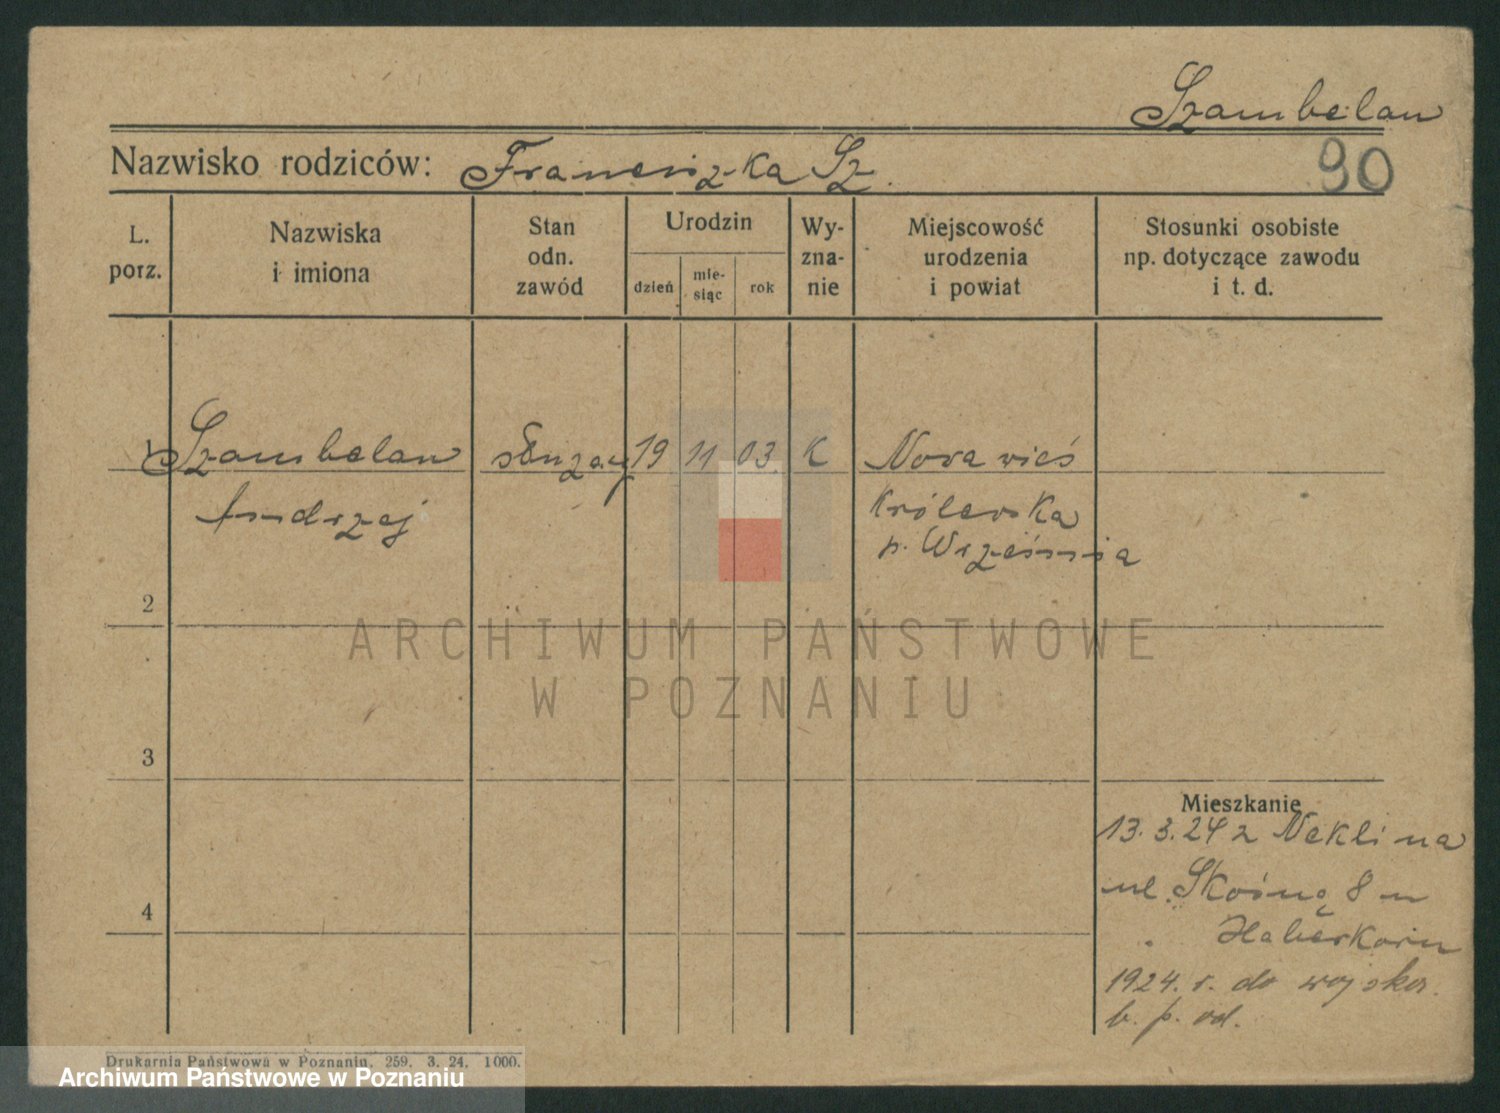 Szambelan
Nazwisko rodziców: Franciszka Sz.
90
L. porz.
Nazwiska i imiona
Stan odn. zawód
Urodzin
dzień
mie-siąc
rok
Wy-zna-nie
Miejscowość urodzenia i powiat
Stosunki osobiste np. dotyczące zawodu i t. d.
1 Szambelan służący 19 11 03 K Nowa wieś
Andrzej Królewska
p. Września
2
ARCHIWUM PAŃSTWOWE
W POZNANIU
3
Mieszkanie
13. 3. 24 z Nekli na
ul. Skośną 8 u
Haberkorn
4
1924. r. do wojska.
b. p. od.
Drukarnia Państwowa w Poznaniu, 259. 3. 24. 1000.
Archiwum Państwowe w Poznaniu